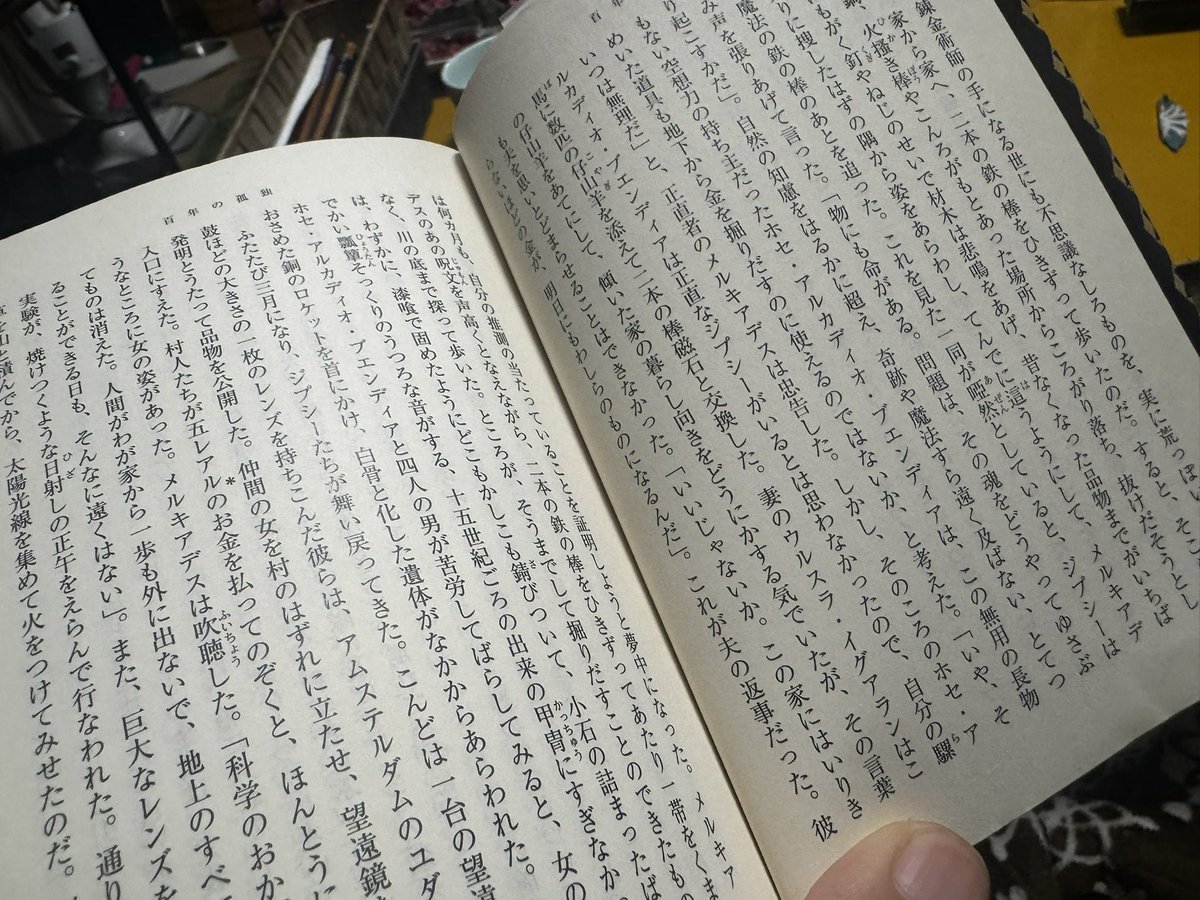 百年
錬金術師の手になる世にも不思議なしろものを、実に荒っぽい
家から家へ、二本の鉄の棒をひきずって歩いたのだ。すると、そこ
火掻き棒やこんろがもとあった場所からころがり落ち、抜けだそうとし
もがく釘やねじのせいで材木は悲鳴をあげ、昔なくなった品物までがいちば
りに捜したはずの隅から姿をあらわし、てんでに這うようにして、メルキアデ
魔法の鉄の棒のあとを追った。これを見た一同が唖然としていると、ジプシーは
み声を張りあげて言った。「物にも命がある。問題は、その魂をどうやってゆさぶ
り起こすかだ」。自然の知慧をはるかに超え、奇跡や魔法すら遠く及ばない、とてつ
もない空想力の持ち主だったホセ・アルカディオ・ブエンディアは、この無用の長物
めいた道具も地下から金を掘りだすのに使えるのではないか、と考えた。「いや、そ
いつは無理だ」と、正直者のメルキアデスは忠告した。しかし、そのころのホセ・ア
ルカディオ・ブエンディアは正直なジプシーがいるとは思わなかったので、自分の騾
馬に数匹の仔山羊を添えて二本の棒磁石と交換した。妻のウルスラ・イグアランはこ
の仔山羊をあてにして、傾いた家の暮らし向きをどうにかする気でいたが、その言葉
も夫を思いとどまらせることはできなかった。「いいじゃないか。この家にはいりき
らないほどの金が、明日にもわしらのものになるんだ」。これが夫の返事だった。彼
百年の孤独
は何カ月も、自分の推測の当たっていることを証明しようと夢中になった。メルキア
デスのあの呪文を声高くとなえながら、二本の鉄の棒をひきずってあたり一帯をくま
なく、川の底まで探って歩いた。ところが、そうまでして掘りだすことのできたもの
は、わずかに、漆喰で固めたようにどこもかしこも錆びついて、小石の詰まったば
でかい瓢箪そっくりのうつろな音がする、十五世紀ごろの出来の甲冑にすぎなか
ホセ・アルカディオ・ブエンディアと四人の男が苦労してばらしてみると、女の
おさめた銅のロケットを首にかけ、白骨と化した遺体がなかからあらわれた。
ふたたび三月になり、ジプシーたちが舞い戻ってきた。こんどは一台の望遠
鼓ほどの大きさの一枚のレンズを持ちこんだ彼らは、アムステルダムのユダ
発明とうたって品物を公開した。仲間の女を村のはずれに立たせ、望遠鏡
入口にすえた。村人たちが五レアル*のお金を払ってのぞくと、ほんとうに
うなところに女の姿があった。メルキアデスは吹聴した。「科学のおか
てものは消えた。人間がわが家から一歩も外に出ないで、地上のすべ
ることができる日も、そんなに遠くはない」。また、巨大なレンズを
実験が、焼けつくような日射しの正午をえらんで行なわれた。通り
草を山と積んでから、太陽光線を集めて火をつけてみせたのだ。